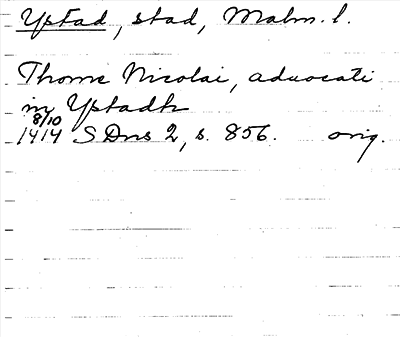 Ystad, stad, Malm. l.
Thome Nicolai, aduocati
in Ystadh
8/10
1414 SDns 2, s. 856. orig.